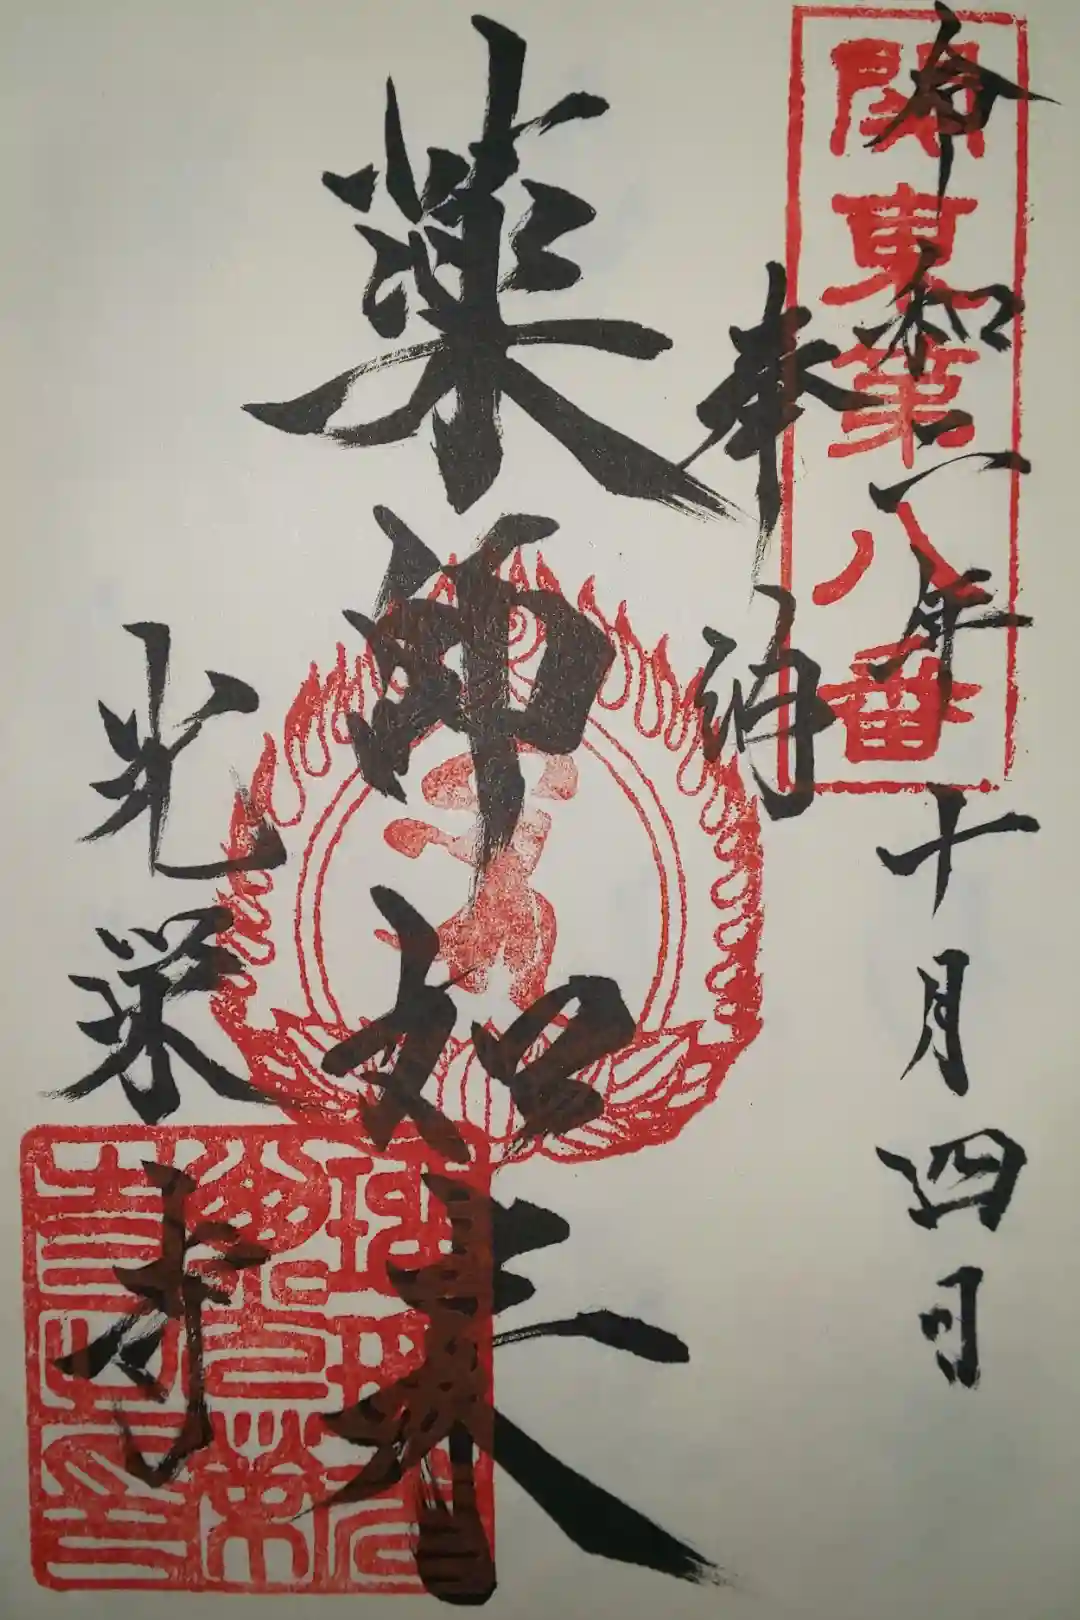 令和二年十月四日
関東第八番
奉納
薬師如来
光栄寺